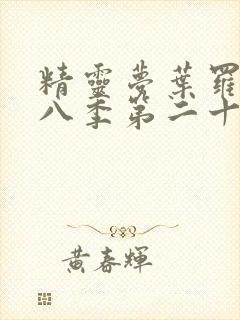 精靈夢葉羅
八季第二十
黃春輝